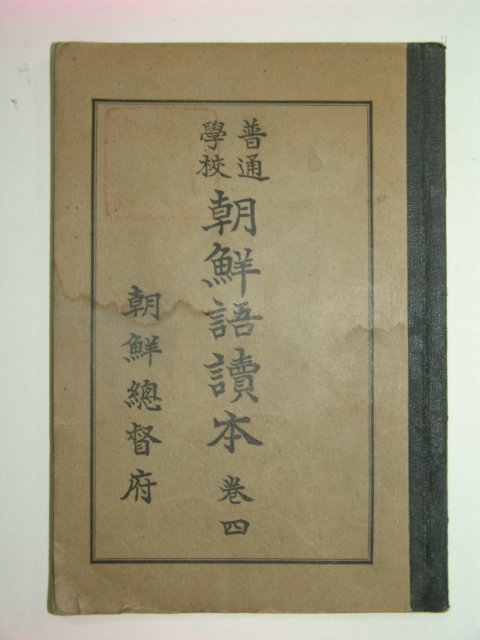 普通
學校
朝鮮語讀本 卷四
朝鮮總督府